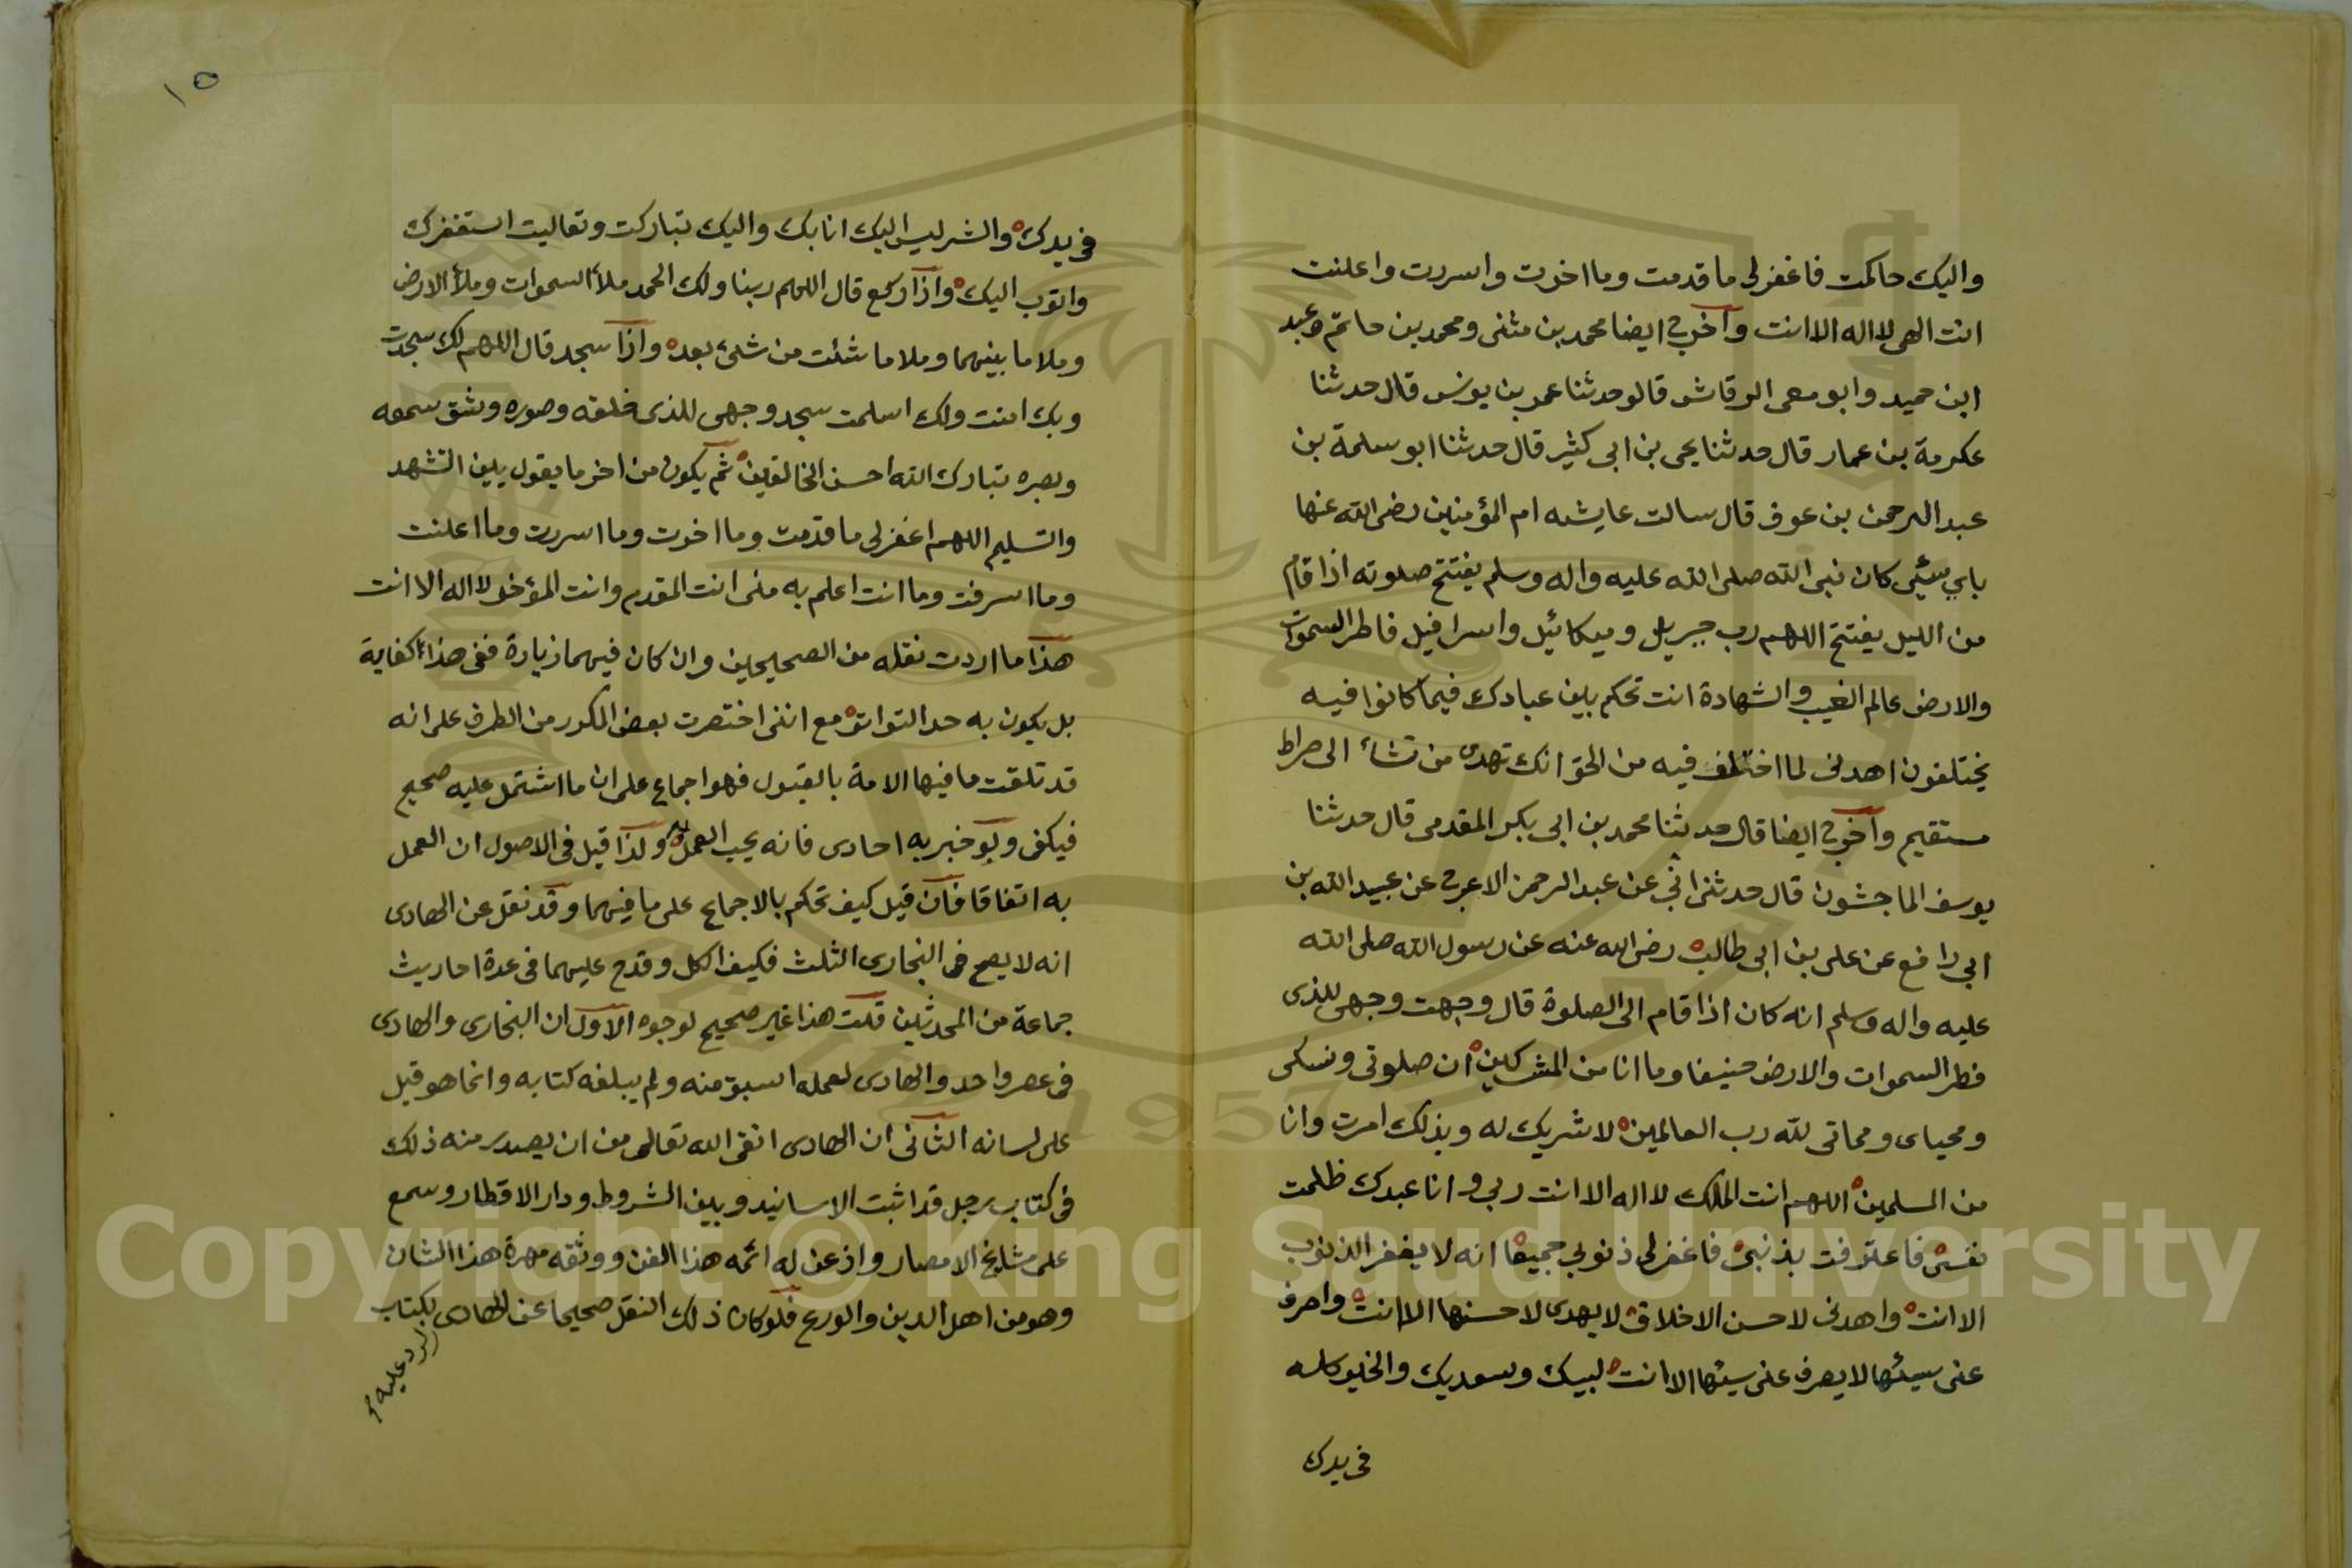 واليك حاكمت فاغفر لى ما قدمت وما اخرت واسررت واعلنت
انت الهى لا اله الا انت وآخرج ايضا محمد بن مثنى ومحمد بن حاتم وعبد
ابن حميد وابو معن الرقاش قالو حدثنا عمر بن يونس قال حدثنا
عكرمة بن عمار قال حدثنا يحى بن ابى كثير قال حدثنا ابو سلمة بن
عبد الرحمن بن عوف قال سالت عايشه ام المؤمنين رضى الله عنها
باي شئى كان نبى الله صلى الله عليه واله وسلم يفتتح صلوته اذا قام
من الليل يفتتح اللهم رب جبريل وميكائيل واسرافيل فاطر السموات
والارض عالم الغيب والشهادة انت تحكم بين عبادك فيما كانوا فيه
يختلفون اهدنى لما اختلف فيه من الحق انك تهدى من تشاء الى صراط
مستقيم وآخرج ايضا قال حدثنا محمد بن ابى بكر المقدمى قال حدثنا
يوسف الماجشون قال حدثنى ابي عن عبد الرحمن الاعرج عن عبيد الله بن
ابي رافع عن على بن ابى طالب رضى الله عنه عن رسول الله صلى الله
عليه واله وسلم انه كان اذا قام الى الصلوة قال وجهت وجهى للذى
فطر السموات والارض حنيفا وما انا من المشركين ان صلوتى ونسكى
ومحياى ومماتى لله رب العالمين لا شريك له وبذلك امرت وانا
من المسلمين اللهم انت الملك لا اله الا انت ربي وانا عبدك ظلمت
نفسى فاعترفت بذنبى فاغفر لى ذنوبي جميعا انه لا يغفر الذنوب
الا انت واهدنى لاحسن الاخلاق لا يهدى لاحسنها الا انت واصرف
عنى سيئها لا يصرف عنى سيئها الا انت لبيك وسعديك والخير كله
فى يدك
١٥
فى يدك والشر ليس اليك انا بك واليك تباركت وتعاليت استغفرك
واتوب اليك واذا ركع قال اللهم ربنا ولك الحمد ملأ السموات وملأ الارض
وملا ما بينهما وملا ما شئت من شئ بعده واذا سجد قال اللهم لك سجدت
وبك امنت ولك اسلمت سجد وجهى للذى خلقه وصوره وشق سمعه
وبصره تبارك الله احسن الخالقين ثم يكون من اخر ما يقول بين التشهد
والتسليم اللهم اغفر لى ما قدمت وما اخرت وما اسررت وما اعلنت
وما اسرفت وما انت اعلم به منى انت المقدم وانت المؤخر لا اله الا انت
هذا ما اردت نقله من الصحيحين وان كان فيهما زيارة ففى هذا كفاية
بل يكون به حد التواتر مع اننى اختصرت بعض المكرر من الطرف على انه
قد تلقت ما فيها الامة بالقبول فهو اجماع على ان ما اشتمل عليه صحيح
فيكفى ولو خبر به احادى فانه يجب العمل به ولذا قيل فى الاصول ان العمل
به اتفاقا فان قيل كيف تحكم بالاجماع على ما فيهما وقد نقل عن الهادى
انه لا يصح فى البخارى الثلث فكيف الكل وقدح عليهما فى عدة احاريث
جماعة من المحدثين قلت هذا غير صحيح لوجوه الاول ان البخارى والهادى
فى عصر واحد والهادى لعمله اسبق منه ولم يبلغه كتابه وانما هو قيل
على لسانه الثانى ان الهادى اتقى الله تعالى من ان يصدر منه ذلك
فى كتاب رجل قد اثبت الاسانيد وبين الشروط ودار الاقطار وسمع
على مشايخ الامصار واذعن له ائمه هذا الفن ووثقه مهرة هذا الشان
وهو من اهل الدين والورع فلو كان ذلك النقل صحيحا عن الهادى لكتاب
الرد عليه
Copyright © King Saud University
1957